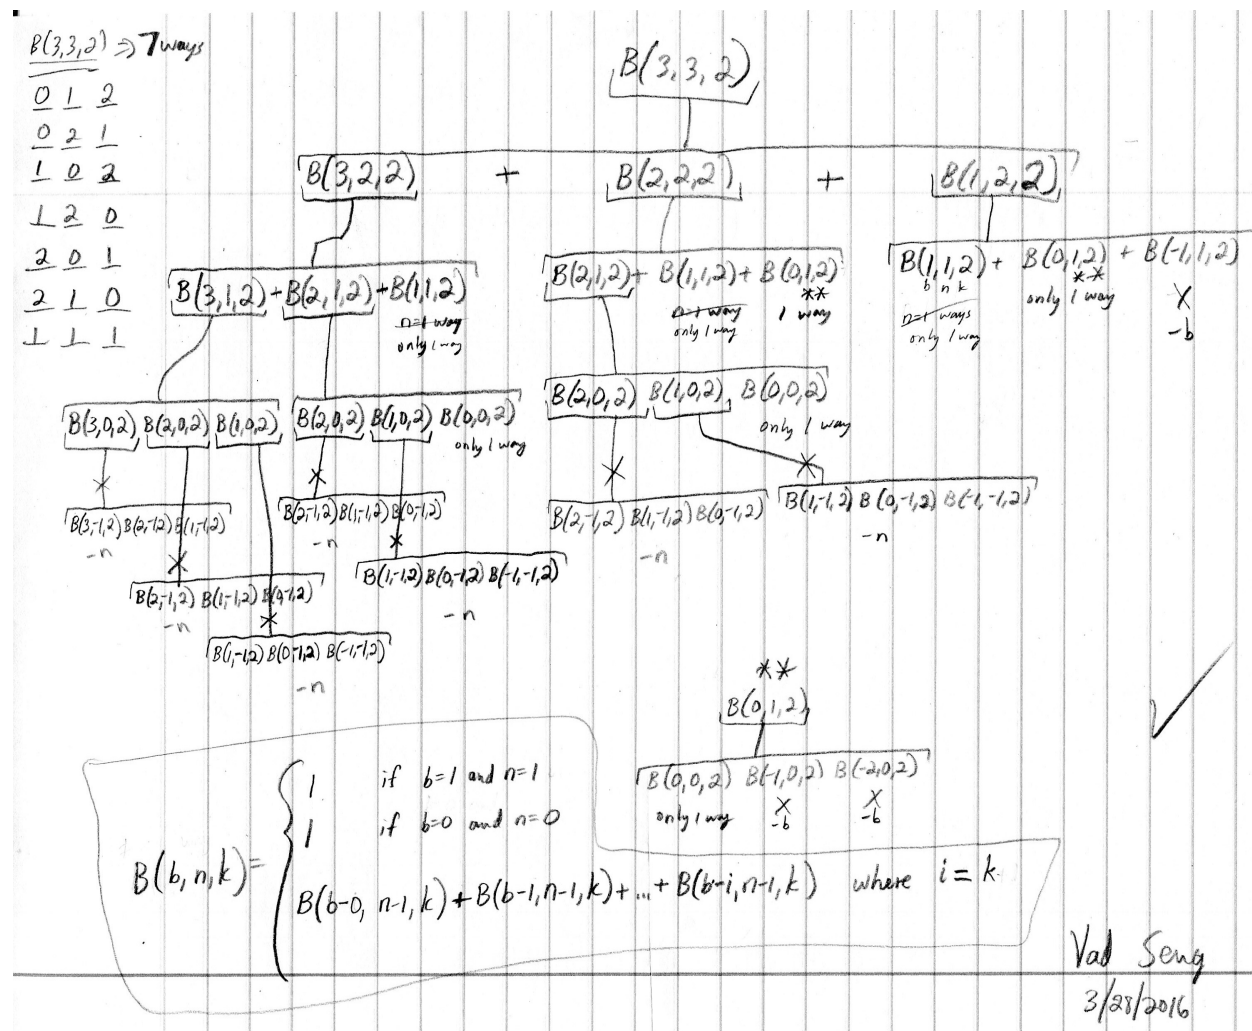 B(3,3,2) => 7 ways
0 1 2
0 2 1
1 0 2
1 2 0
2 0 1
2 1 0
1 1 1
B(3,3,2)
B(3,2,2) + B(2,2,2) + B(1,2,2)
B(3,1,2) + B(2,1,2) + B(1,1,2)
n=1 way
only 1 way
B(2,1,2) + B(1,1,2) + B(0,1,2)
**
n=1 way
only 1 way
1 way
B(1,1,2) + B(0,1,2) + B(-1,1,2)
b n k
**
n=1 ways
only 1 way
only 1 way
X
-b
B(3,0,2) B(2,0,2) B(1,0,2)
B(2,0,2) B(1,0,2) B(0,0,2)
only 1 way
B(2,0,2) B(1,0,2) B(0,0,2)
only 1 way
B(3,-1,2) B(2,-1,2) B(1,-1,2)
-n
B(2,-1,2) B(1,-1,2) B(0,-1,2)
-n
B(2,-1,2) B(1,-1,2) B(0,-1,2)
-n
B(1,-1,2) B(0,-1,2) B(-1,-1,2)
-n
B(2,-1,2) B(1,-1,2) B(0,-1,2)
-n
B(1,-1,2) B(0,-1,2) B(-1,-1,2)
-n
B(1,-1,2) B(0,-1,2) B(-1,-1,2)
-n
**
B(0,1,2)
B(0,0,2) B(-1,0,2) B(-2,0,2)
only 1 way
X
-b
X
-b
B(b,n,k) =
1 if b=1 and n=1
1 if b=0 and n=0
B(b-0, n-1, k) + B(b-1, n-1, k) + ... + B(b-i, n-1, k) where i = k
Vad Seng
3/28/2016